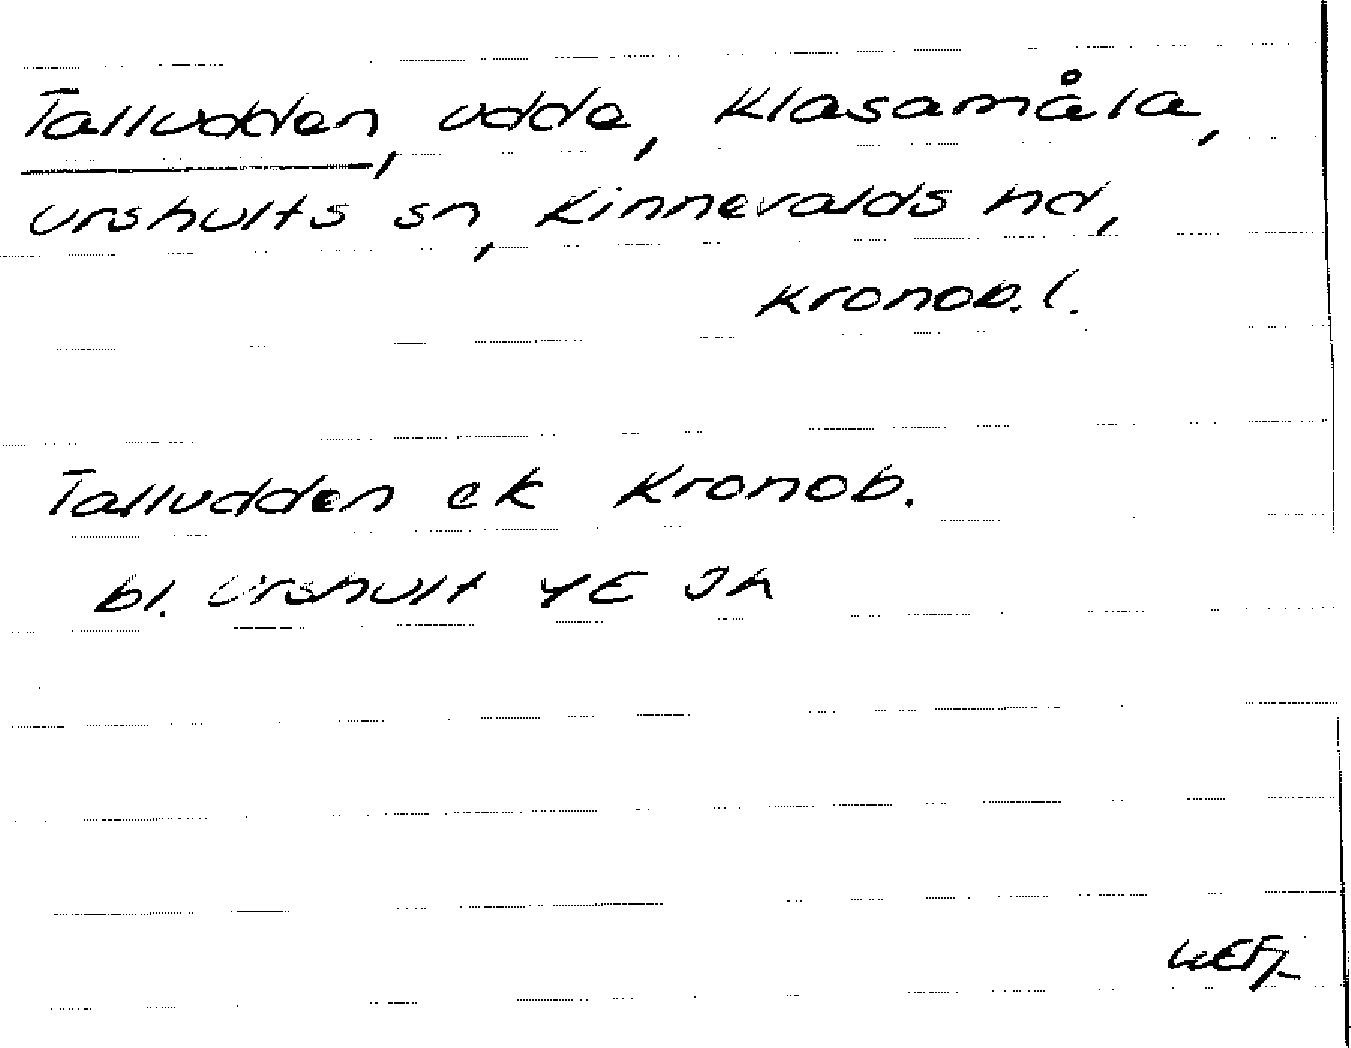 Talludden, udde, Klasamåla,
Urshults sn, Kinnevalds hd,
Kronob. l.
Talludden ek Kronob.
bl. Urshult 4E Jh